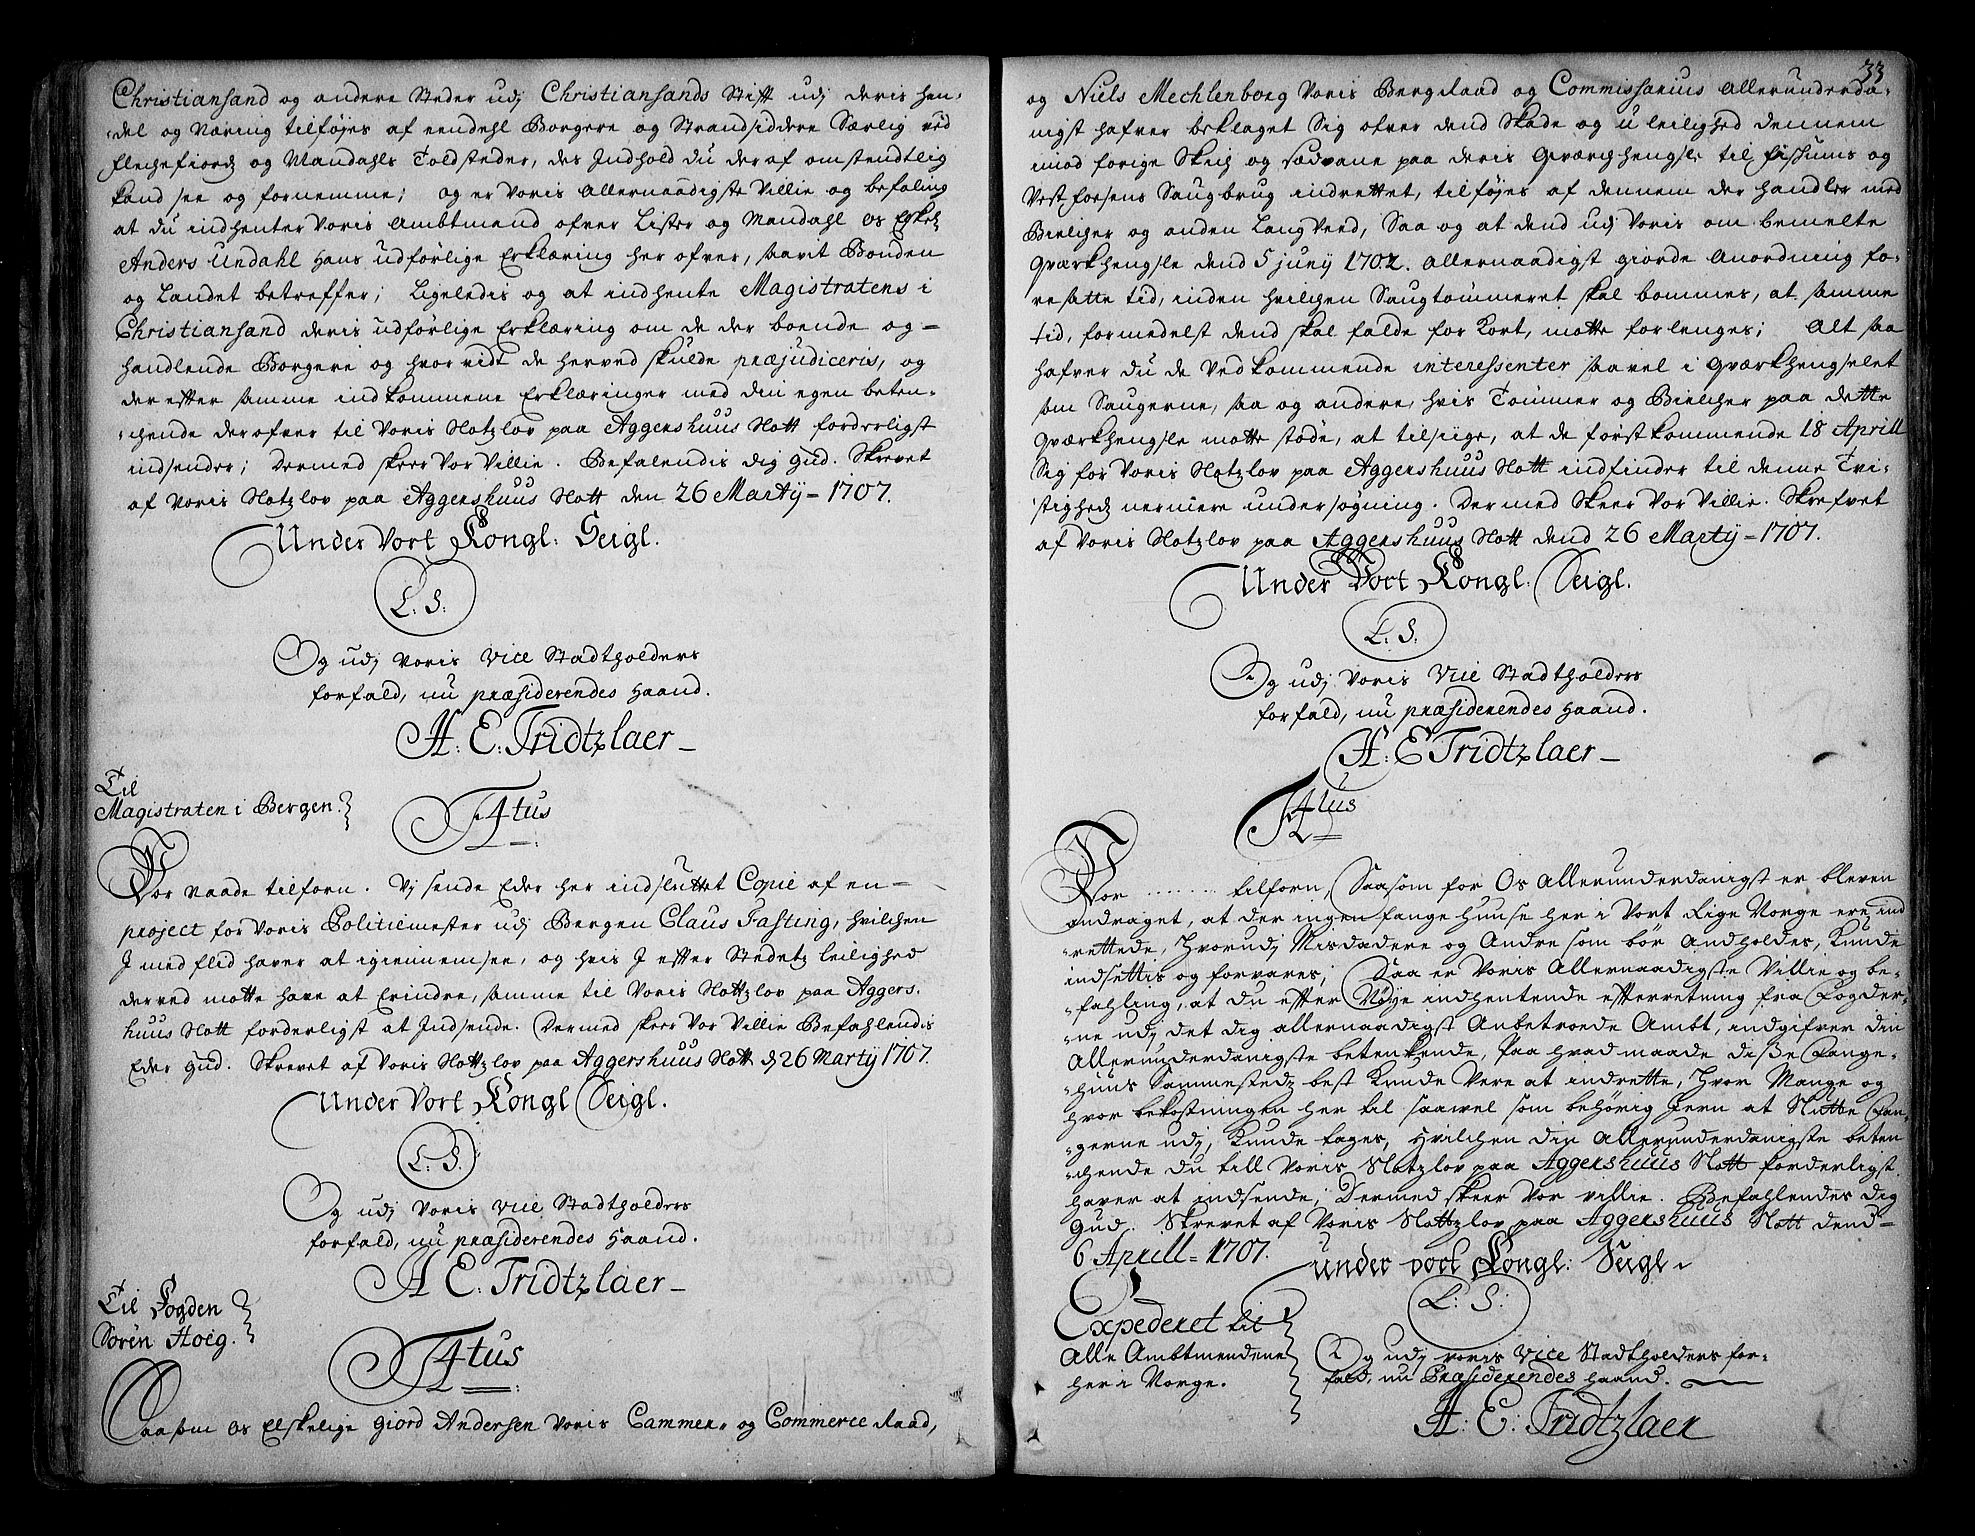 Christiansand og andere Steder udj Christiansands Stift udj deris han-
del og Næring tilføjes af eendehl Borgere og Strandsiddere Særlig ved
Flechefiord og Mandahls Toldsteder, des Indhold du der af omstendtlig
kand see og fornemme; og er Voris Allernaadigste Villie og befaling
at du indhenter Voris Ambtmand ofver Lister og Mandahl Os Elskel:
Anders Undahl Hans udførlige Erklæring her ofver, saavit Bonden
og Landet betreffer; Ligeledis og at indhente Magistratens i
Christiansand deris udførlige Erklæring om de der boende og-
handlende Borgere og hvor vidt de herved skulde præjudiceris, og
der efter samme indkommene Erklæringer med din egen beten-
chende der ofver til Voris Slotzlov paa Aggershuus Slott forderligst
indsender; Dermed skeer Vor Villie. Befalendis dig Gud. Skrevet
af Voris Slotzlov paa Aggershuus Slott den 26 Martij - 1707.
Under Vort Kongl: Seigl.
L: S:
Og udj Voris Vice Stadtholders
forfald, nu præsiderendes Haand.
A: E: Tridtzlaer
Til
Magistraten i Bergen.
T4tus
Vor Naade tilforn. Vj sende Eder her indsluttet Copie af en-
project for Voris Politiemester udj Bergen Claus Fasting, hvilchen
I med flid haver at igiennemsee, og hvis I efter Stedetz leilighed
derved motte have at Erindre, samme til Voris Slottzlov paa Aggers-
huus Slott forderligst at Indsende. Dermed skeer Vor Villie Befahlendis
Eder Gud. Skrevet af Voris Slottzlov paa Aggershuus Slott dj 26 Martij 1707.
Under Vort Kongl Seigl.
L: S.
Og udj Voris Vice Stadtholders
forfald, nu præsiderendes Haand.
A E: Tridtzlaer
Til Fogden
Sørén Hoeg.
T4tus
Saasom Os Elskelige Giord Andersen Voris Cammer- og Commerce Raad,
33
og Niels Mechlenborg Voris Bergraad og Commissarius Allerunderda-
nigst hafver beklaget Sig ofver dend Skade og uleilighed dennem
imod forige Skich og sædvane paa deris Qværchhengsle til Fissums og
Vestfossens Saugbrug indrettet, tilføjes af dennem der handler med
Bielcher og anden Langved, Saa og at dend udj Voris om bemelte
Qværkhengsle dend 5 junij 1702. Allernaadigst giorde Anordning fo-
resatte tid, inden hvilchen Saugtømmeret skal bommes, at samme
tid, formedelst dend skal falde for Kort, motte forlenges; Alt saa
hafver du de Vedkommende interessenter saavel i Qværkhengselet
som Saugerne, saa og andere, hvis Tømmer og Bielcher paa dette
Qværkhengsle motte støde, at tilsiige, at de først kommende 18 Aprill
Sig for Voris Slotzlov paa Aggershuus Slott indfinder til denne Tvi-
stighed nermere undersøgning. Dermed Skeer Vor Villie. Skrefvet
af Voris Slotzlov paa Aggershuus Slott dend 26 Martij - 1707.
Under Vort Kongl: Seigl.
L: S:
Og udj Voris Vice Stadtholders
forfald, nu præsiderendes Haand.
A: E Tridtzlaer
T4tus
Vor ........ tilforn, Saasom for Os Allerunderdanigst er bleven
andraget, at der ingen fange huuse her i Vort Rige Norge ere ind
rettede, Hvorudj Misdadere og Andre som bør Andholdes, Kunde
indsettis og forvares; Saa er Voris Allernaadigste Villie og be-
fahling, at du efter Nøye indhentende efterretning fra Fogder-
ne udj det dig allernaadigst Anbetroede Ambt, indgifver din
Allerunderdanigste betenkende, Paa hvad maade disse Fange-
huus Sammestedz best Kunde Vere at indrette, Hvor Mange og
hvor bekostningen her til saawel som behørig Jern at Slutte Fan-
gerne udj, Kunde tages, Hvilchen din Allerunderdanigste beten
chende du till Voris Slotzlov paa Aggershuus Slott forderligst
haver at indsende; Dermed skeer Vor villie. Befahlendes dig
Gud. Skrevet af Voris Slottzlov paa Aggershuus Slott dend-
6 Aprill - 1707.
under vort Kongl: Seigl
L: S:
Expederet til
Alle Ambtmendene
her i Norge.
Og udj voris Vice Stadtholders for-
fald, nu Præsiderendes haand.
A: E: Tridtzlaer